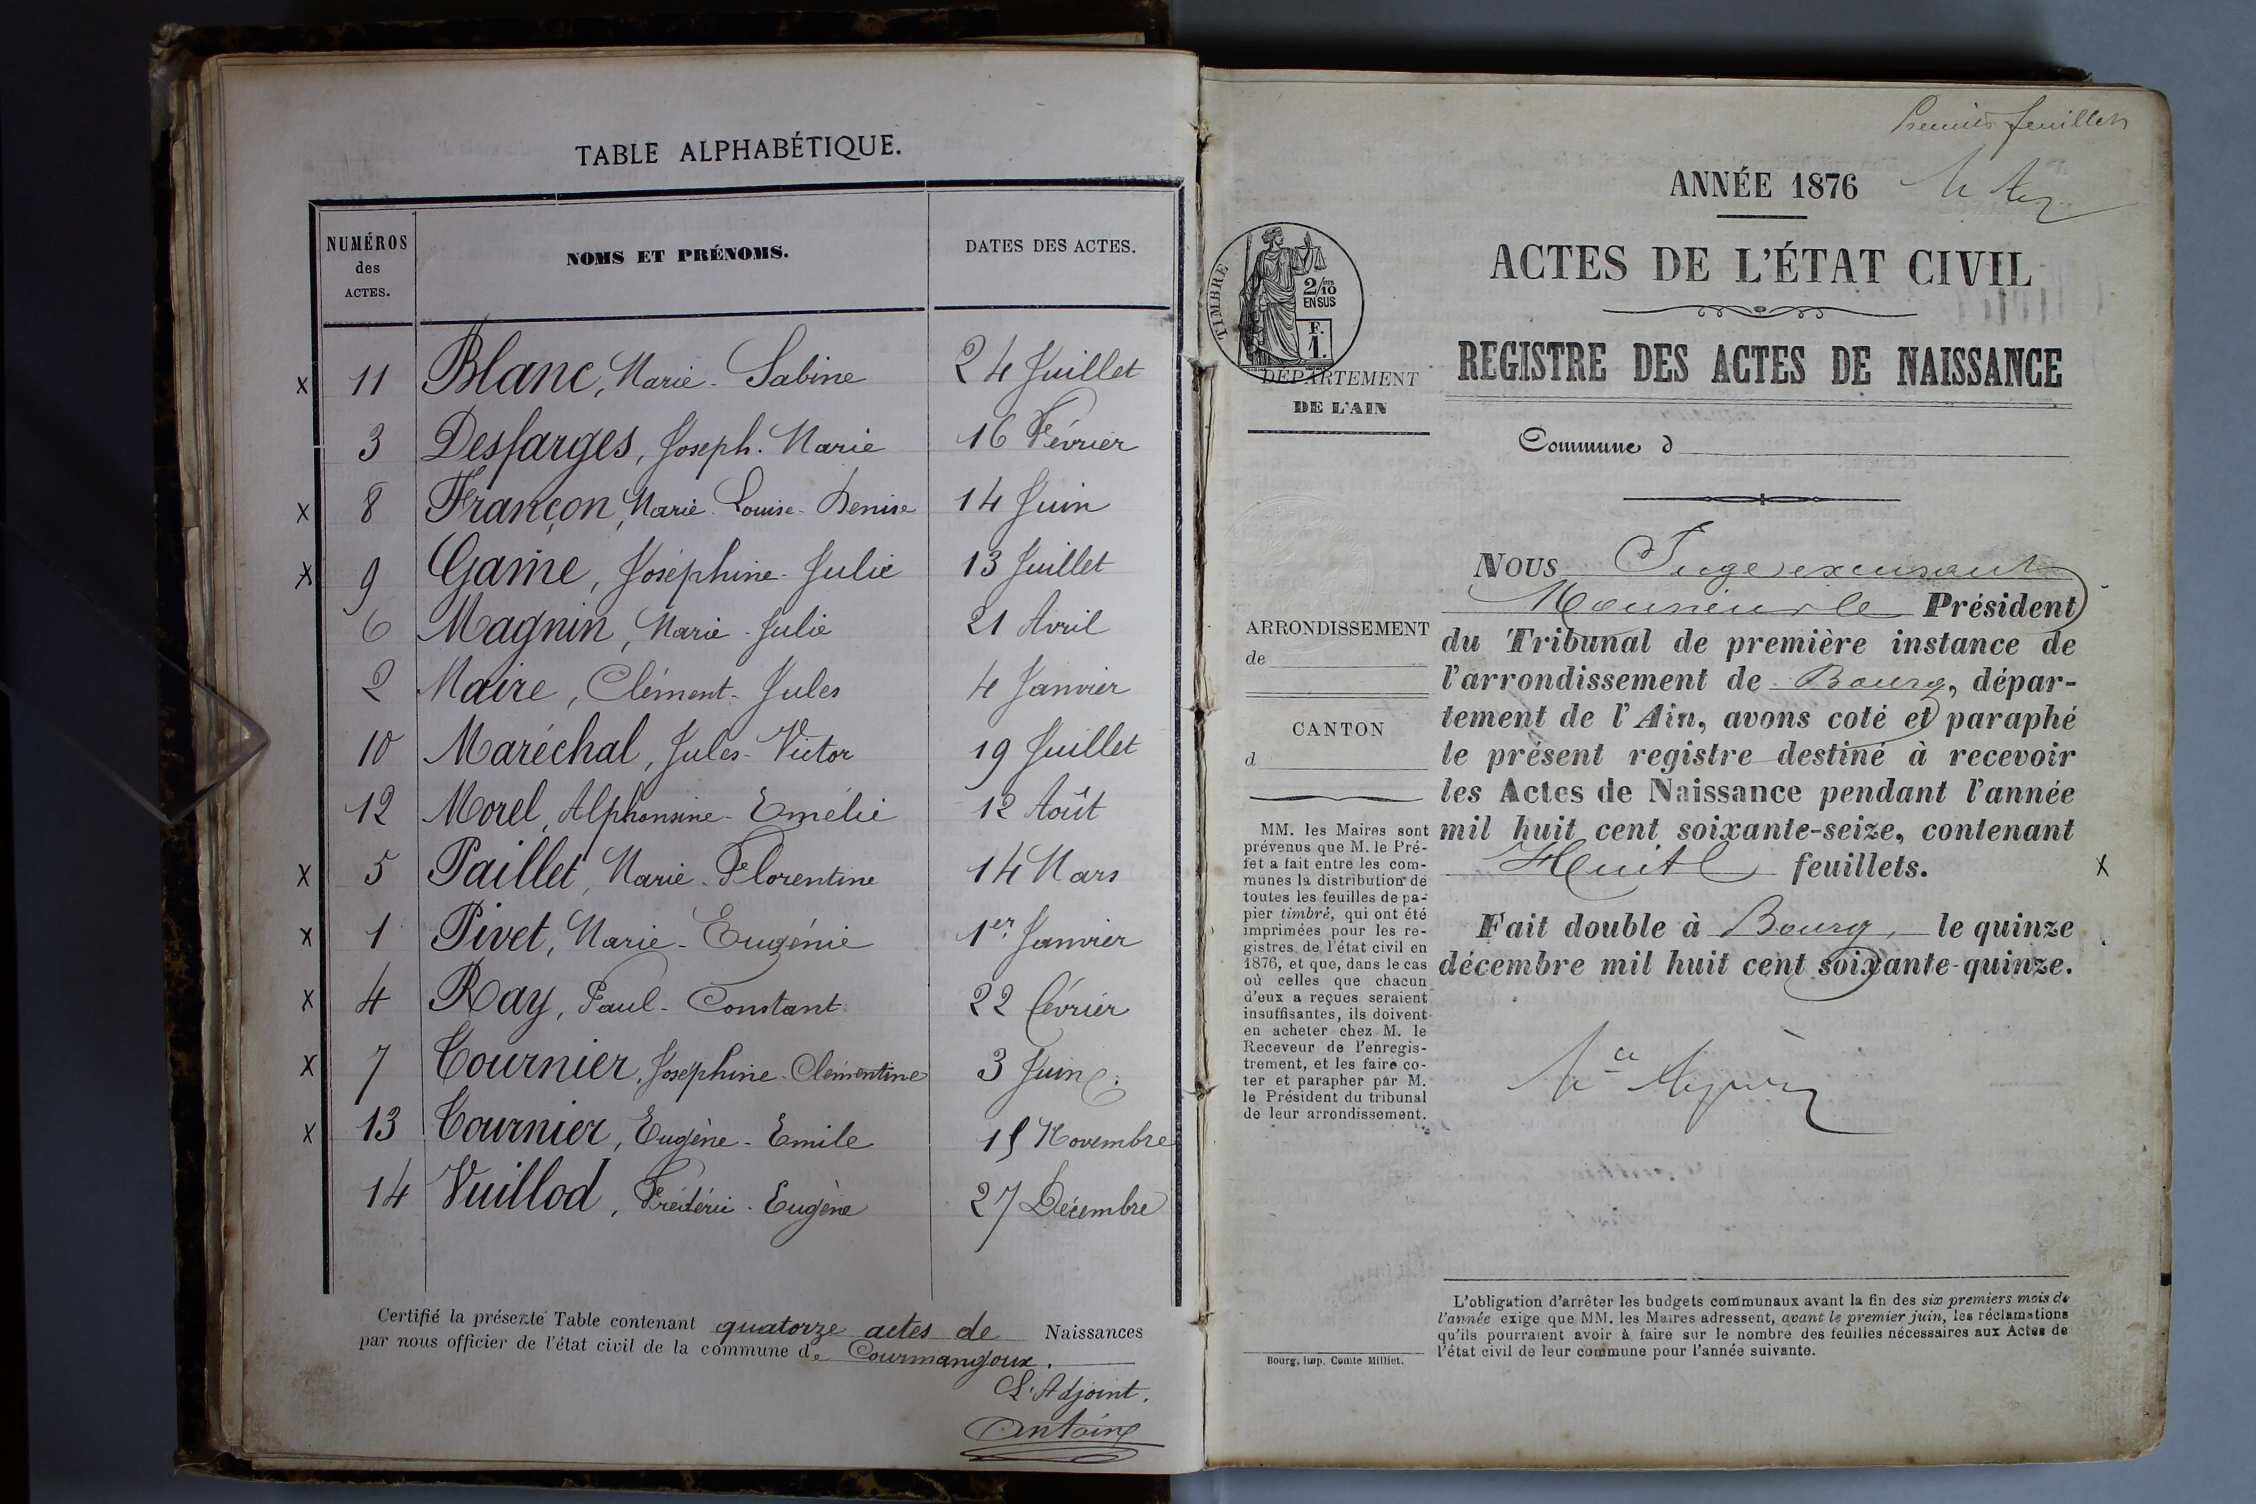 TABLE ALPHABÉTIQUE.
NUMÉROS
des
ACTES.
NOMS ET PRÉNOMS.
DATES DES ACTES.
x 11 Blanc, Marie - Sabine 24 Juillet
3 Desfarges, Joseph. Marie 16 Février
x 8 Françon, Marie Louise - Denise 14 Juin
x 9 Game, Joséphine - Julie 13 Juillet
6 Magnin, Marie - Julie 21 Avril
2 Maire, Clément - Jules 4 Janvier
10 Maréchal, Jules - Victor 19 Juillet
12 Morel, Alphonsine - Emélie 12 Août
x 5 Paillet, Marie - Florentine 14 Mars
x 1 Pivet, Marie - Eugénie 1er Janvier
x 4 Ray, Paul - Constant 22 février
x 7 Tournier, Joséphine - Clémentine 3 Juin
x 13 Tournier, Eugène - Emile 15 Novembre
14 Vuillod, Frédéric - Eugène 27 Décembre
Certifié la présente Table contenant quatorze actes de Naissances
par nous officier de l'état civil de la commune de Courmangoux.
L'Adjoint.
Antoine
Premier feuillet
ANNÉE 1876
ACTES DE L'ÉTAT CIVIL
REGISTRE DES ACTES DE NAISSANCE
TIMBRE
2/10
EN SUS
F.
1.
DÉPARTEMENT
DE L'AIN
Commune d
ARRONDISSEMENT
de
CANTON
d
MM. les Maires sont
prévenus que M. le Pré-
fet a fait entre les com-
munes la distribution de
toutes les feuilles de pa-
pier timbré, qui ont été
imprimées pour les re-
gistres de l'état civil en
1876, et que, dans le cas
où celles que chacun
d'eux a reçues seraient
insuffisantes, ils doivent
en acheter chez M. le
Receveur de l'enregis-
trement, et les faire co-
ter et parapher par M.
le Président du tribunal
de leur arrondissement.
NOUS Juge
Monsieur le Président
du Tribunal de première instance de
l'arrondissement de Bourg, dépar-
tement de l'Ain, avons coté et paraphé
le présent registre destiné à recevoir
les Actes de Naissance pendant l'année
mil huit cent soixante-seize, contenant
Huit feuillets. x
Fait double à Bourg, le quinze
décembre mil huit cent soixante-quinze.
L'obligation d'arrêter les budgets communaux avant la fin des six premiers mois de
l'année exige que MM. les Maires adressent, avant le premier juin, les réclamations
qu'ils pourraient avoir à faire sur le nombre des feuilles nécessaires aux Actes de
l'état civil de leur commune pour l'année suivante.
Bourg, imp. Comte Milliet.